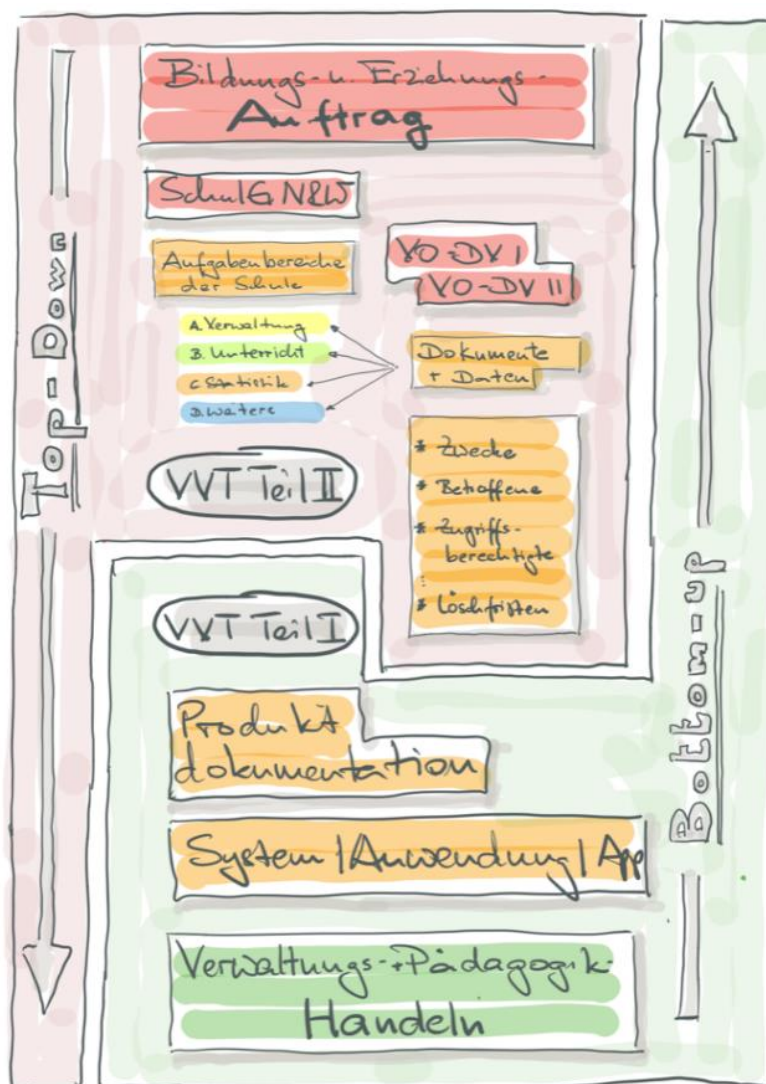 Top-Down
Bildungs- u. Erziehungs-
Auftrag
SchulG NRW
Aufgabenbereiche
der Schule
VO-DV I
VO-DV II
A. Verwaltung
B. Unterricht
C. Statistik
D. Weitere
Dokumente
+ Daten
* Zwecke
* Betroffene
* Zugriffs-
berechtigte
...
* Löschfristen
VVT Teil II
VVT Teil I
Produkt
dokumentation
System | Anwendung | App
Verwaltungs- + Pädagogik-
Handeln
Bottom-up